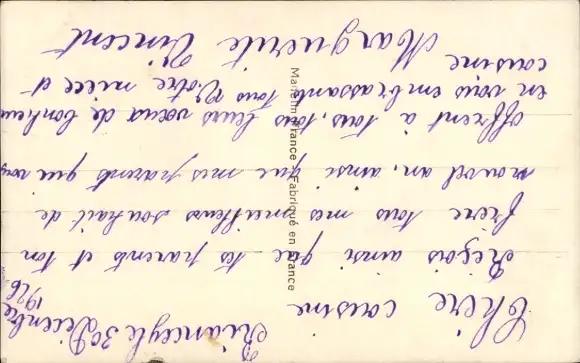 30 Décembre
1926
Chère cousine
Reçois ainsi que tes parents et ton
frère tous mes meilleurs souhait de
nouvel an, ainsi que mes parents qui vous
offrent à tous, tous leurs vœux de bonheur
en vous embrassant tous Votre nièce et
cousine
Marguerite Vincent
Made in France - Fabriqué en France